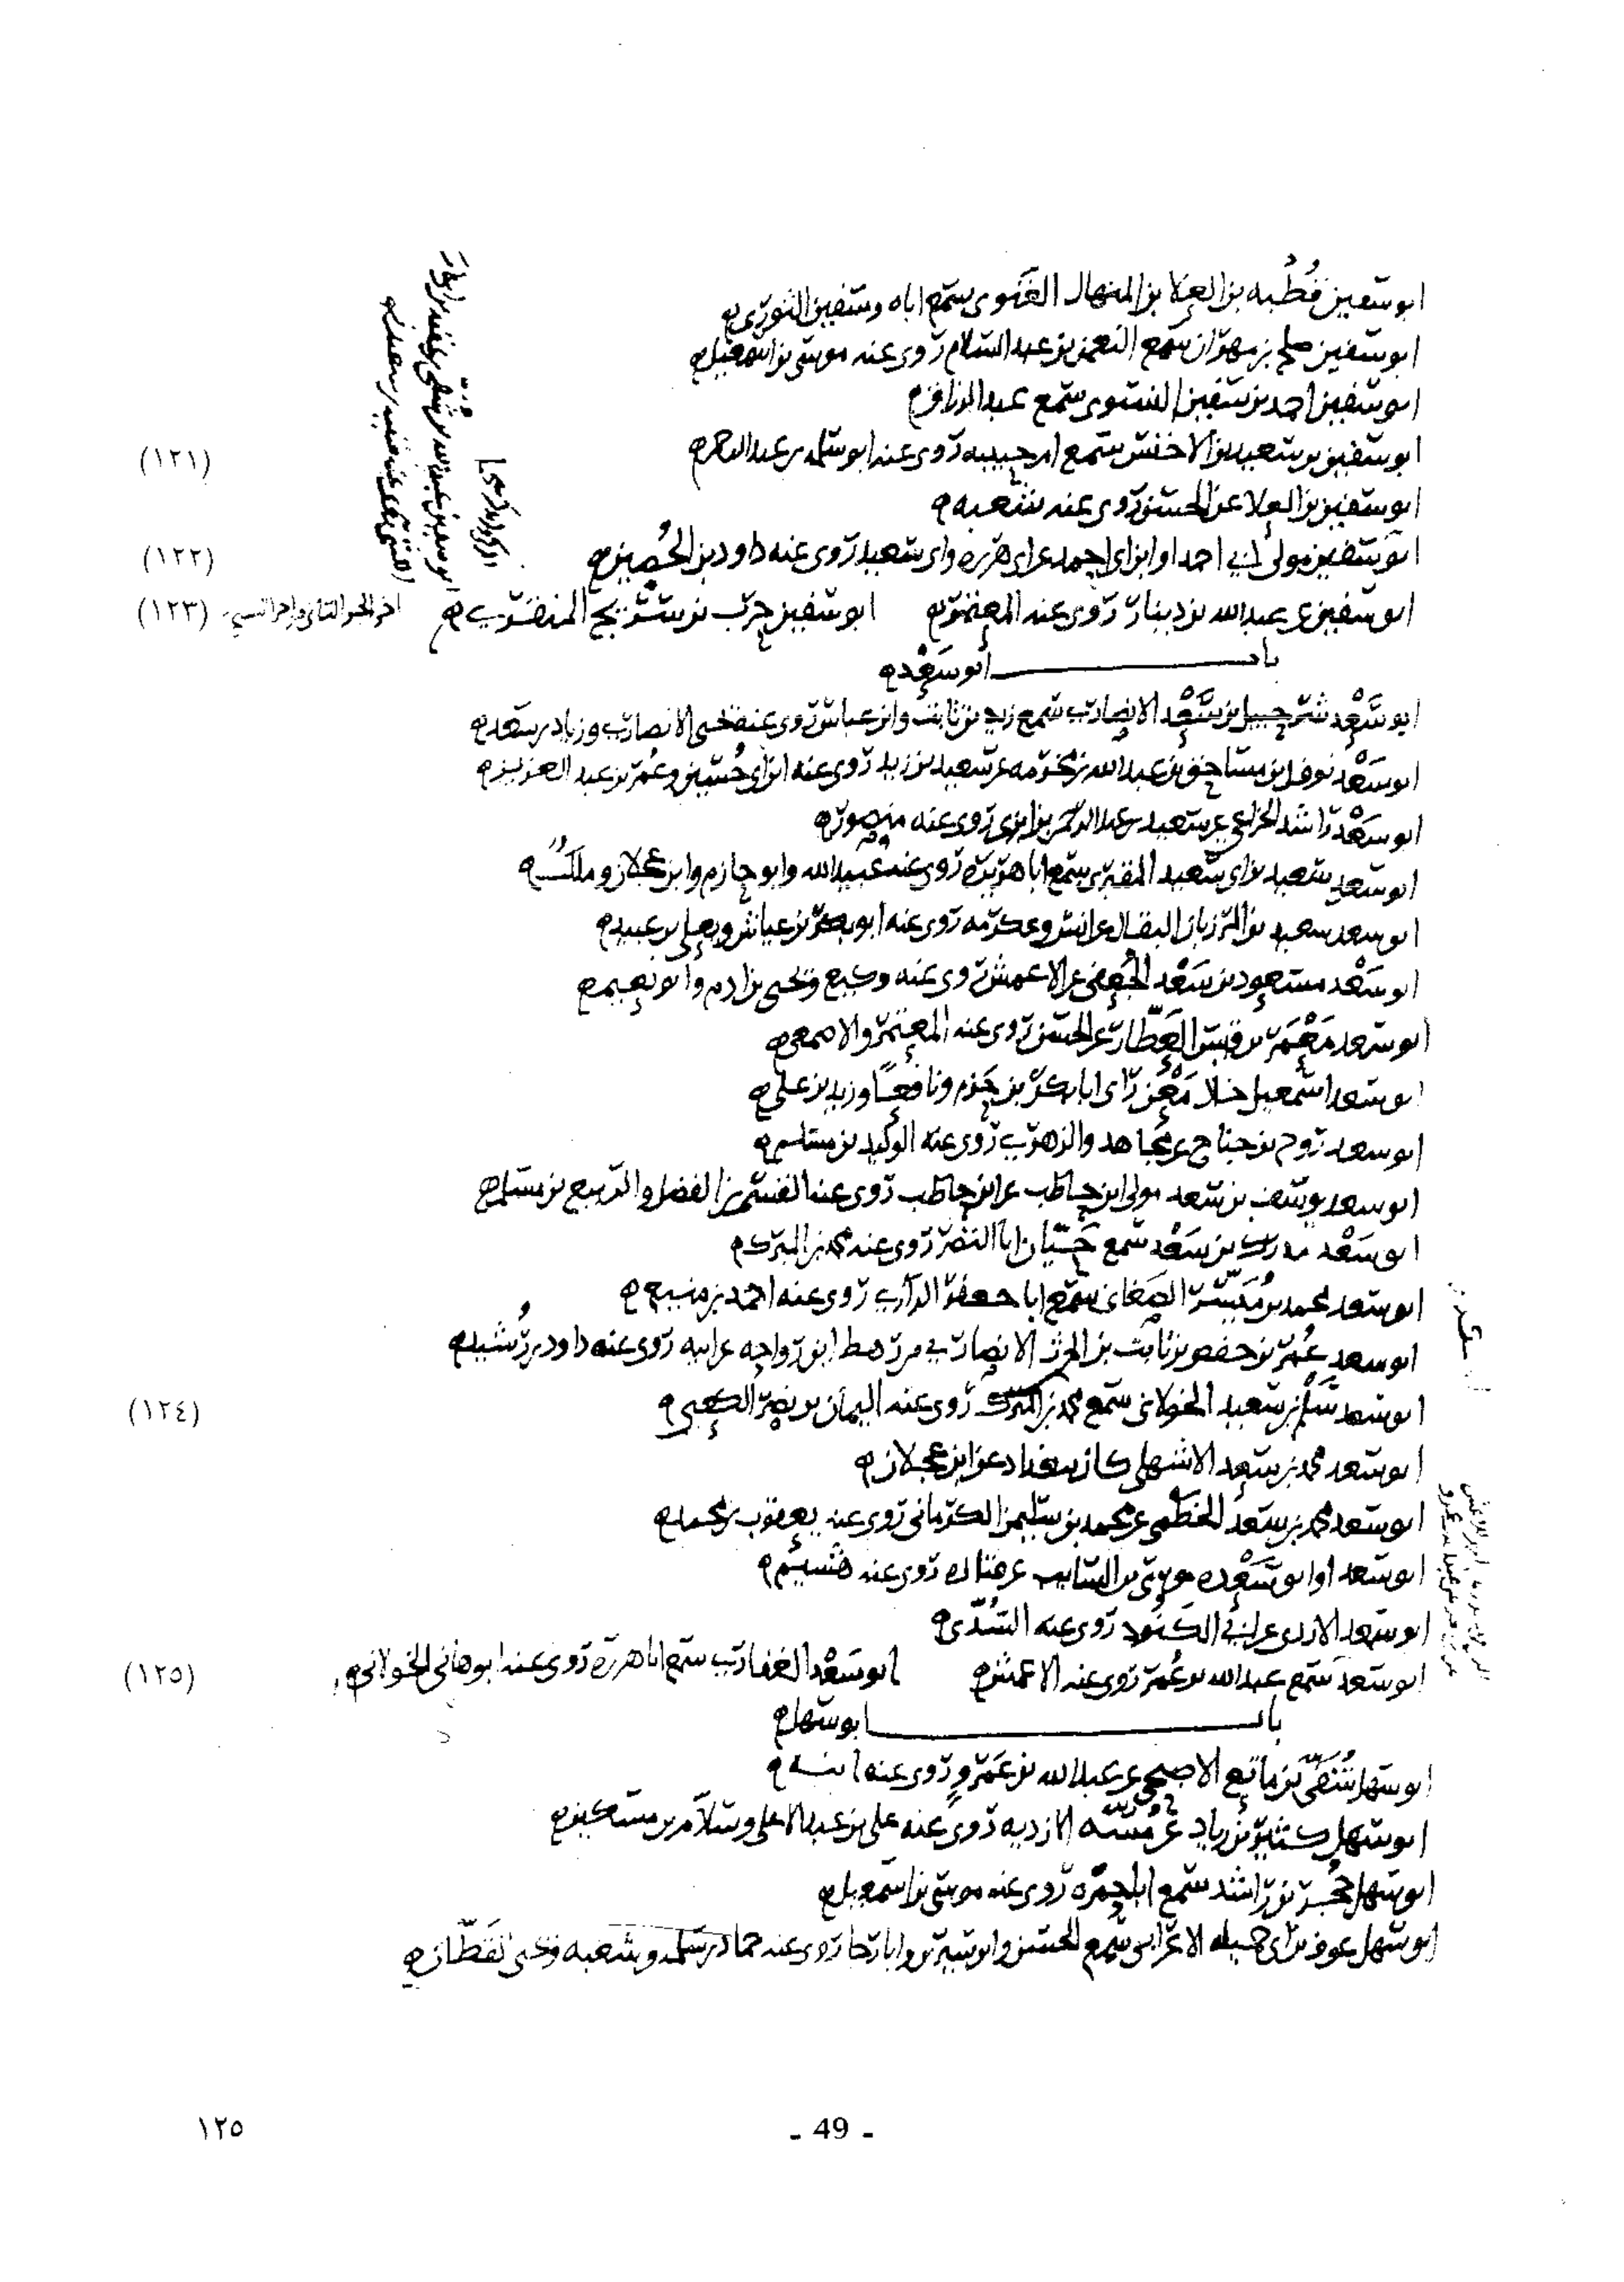 ابو سفين قُطْبه بن العلا بن المنهال الغنوى سمع اباه وسفين الثورى
ابو سفين صلح بن مهران سمع النعمن بن عبد السلام روى عنه موسى بن اسمعيل
ابو سفين احمد بن سفين النسوى سمع عبد الرزاق
ابو سفين بن سعيد بن الاخنس سمع ام حبيبه روى عنه ابو سلمه بن عبد الرحمن
(١٢١)
ابو سفين بن العلا عن الحسن روى عنه شعبه
ابو سفين مولى ابي احمد او ابن ابى احمد عن ابى هريره وابى سعيد روى عنه داود بن الحُصين
(١٢٢)
ابو سفين عن عبد الله بن دينار روى عنه المعتمر ابو سفين حرب بن سريج المنقري
اخر الجز الثانى من اجزا الشيخ
(١٢٣)
باب ابو سَعْد
ابو سَعْد شرحبيل بن سَعْد الانصارى سمع زيد بن ثابت وابن عباس روى عنه يحيى الانصارى وزياد بن سعد
ابو سَعْد نوفل بن مساحق بن عبد الله بن مخرمه عن سعيد بن زيد روى عنه ابن ابى حُسين وعُمر بن عبد العزيز
ابو سَعْد راشد الخزاعي عن سعيد بن عبد الرحمن بن ابزى روى عنه منصور
ابو سعد سعيد بن ابى سعيد المقبرى سمع ابا هريره روى عنه عبيد الله وابو حازم وابن عجلان وملك
ابو سعد سعيد بن المرزبان البقال عن انس وعكرمه روى عنه ابو بكر بن عياش ويعلى بن عبيد
ابو سَعْد مسعود بن سَعْد الجُعفى عن الاعمش روى عنه وكيع ويحيى بن ادم وابو نعيم
ابو سعد مَعْمَر بن قيس العَطّار عن الحسن روى عنه المعتمر والاصمعى
ابو سعد اسمعيل خال مَعْن راى ابا بكر بن حَزم ونافعًا وزيد بن على
ابو سعد روح بن جناح عن مجاهد والزهرى روى عنه الوليد بن مسلم
ابو سعد يوسف بن سعد مولى ابن حاطب عن ابن حاطب روى عنه القسم بن الفضل والربيع بن مسلم
ابو سَعْد مدرك بن سَعْد سمع حَيّان ابا النضر روى عنه محمد بن المبرك
ابو سعد محمد بن مُيَسّر الصغانى سمع ابا جعفر الرازى روى عنه احمد بن منيع
ابو سعد عُمر بن حفص بن ثابت بن الحرث الانصاري من رهط ابن رواحه عن ابيه روى عنه داود بن رُشيد
ابو سعد سَلْم بن سعيد الخولانى سمع محمد بن المبرك روى عنه اليمان بن نصر الكعبى
(١٢٤)
ابو سعد محمد بن سعد الاشهلى كان ببغداد عن ابن عجلان
ابو سعد محمد بن سعد الخطمى عن محمد بن سليمن الكرمانى روى عنه يعقوب بن محمد
ابو سعد او ابو سَعْده بن السايب عن قتاده روى عنه هُشيم
ابو سعد الازدى عن ابي الكنود روى عنه السُدّى
ابو سعد سمع عبد الله بن عُمر روى عنه الاعمش ابو سَعْد الغفارى سمع ابا هريره روى عنه ابو هانى الخولانى
(١٢٥)
باب ابو سهل
ابو سهل شُفَىّ بن ماتع الاصبحى عن عبد الله بن عَمْرو روى عنه ابنه
ابو سهل كثير بن زياد عن مُسّه الازديه روى عنه على بن عبد الاعلى وسلام بن مسكين
ابو سهل حُجر بن راشد سمع ابا حمزه روى عنه موسى بن اسمعيل
ابو سهل عوف بن ابى جميله الاعرابى سمع الحسن وابن سيرين وابا رجا روى عنه حماد بن سلمه وشعبه ويحيى القطان
- 49 -
١٢٥